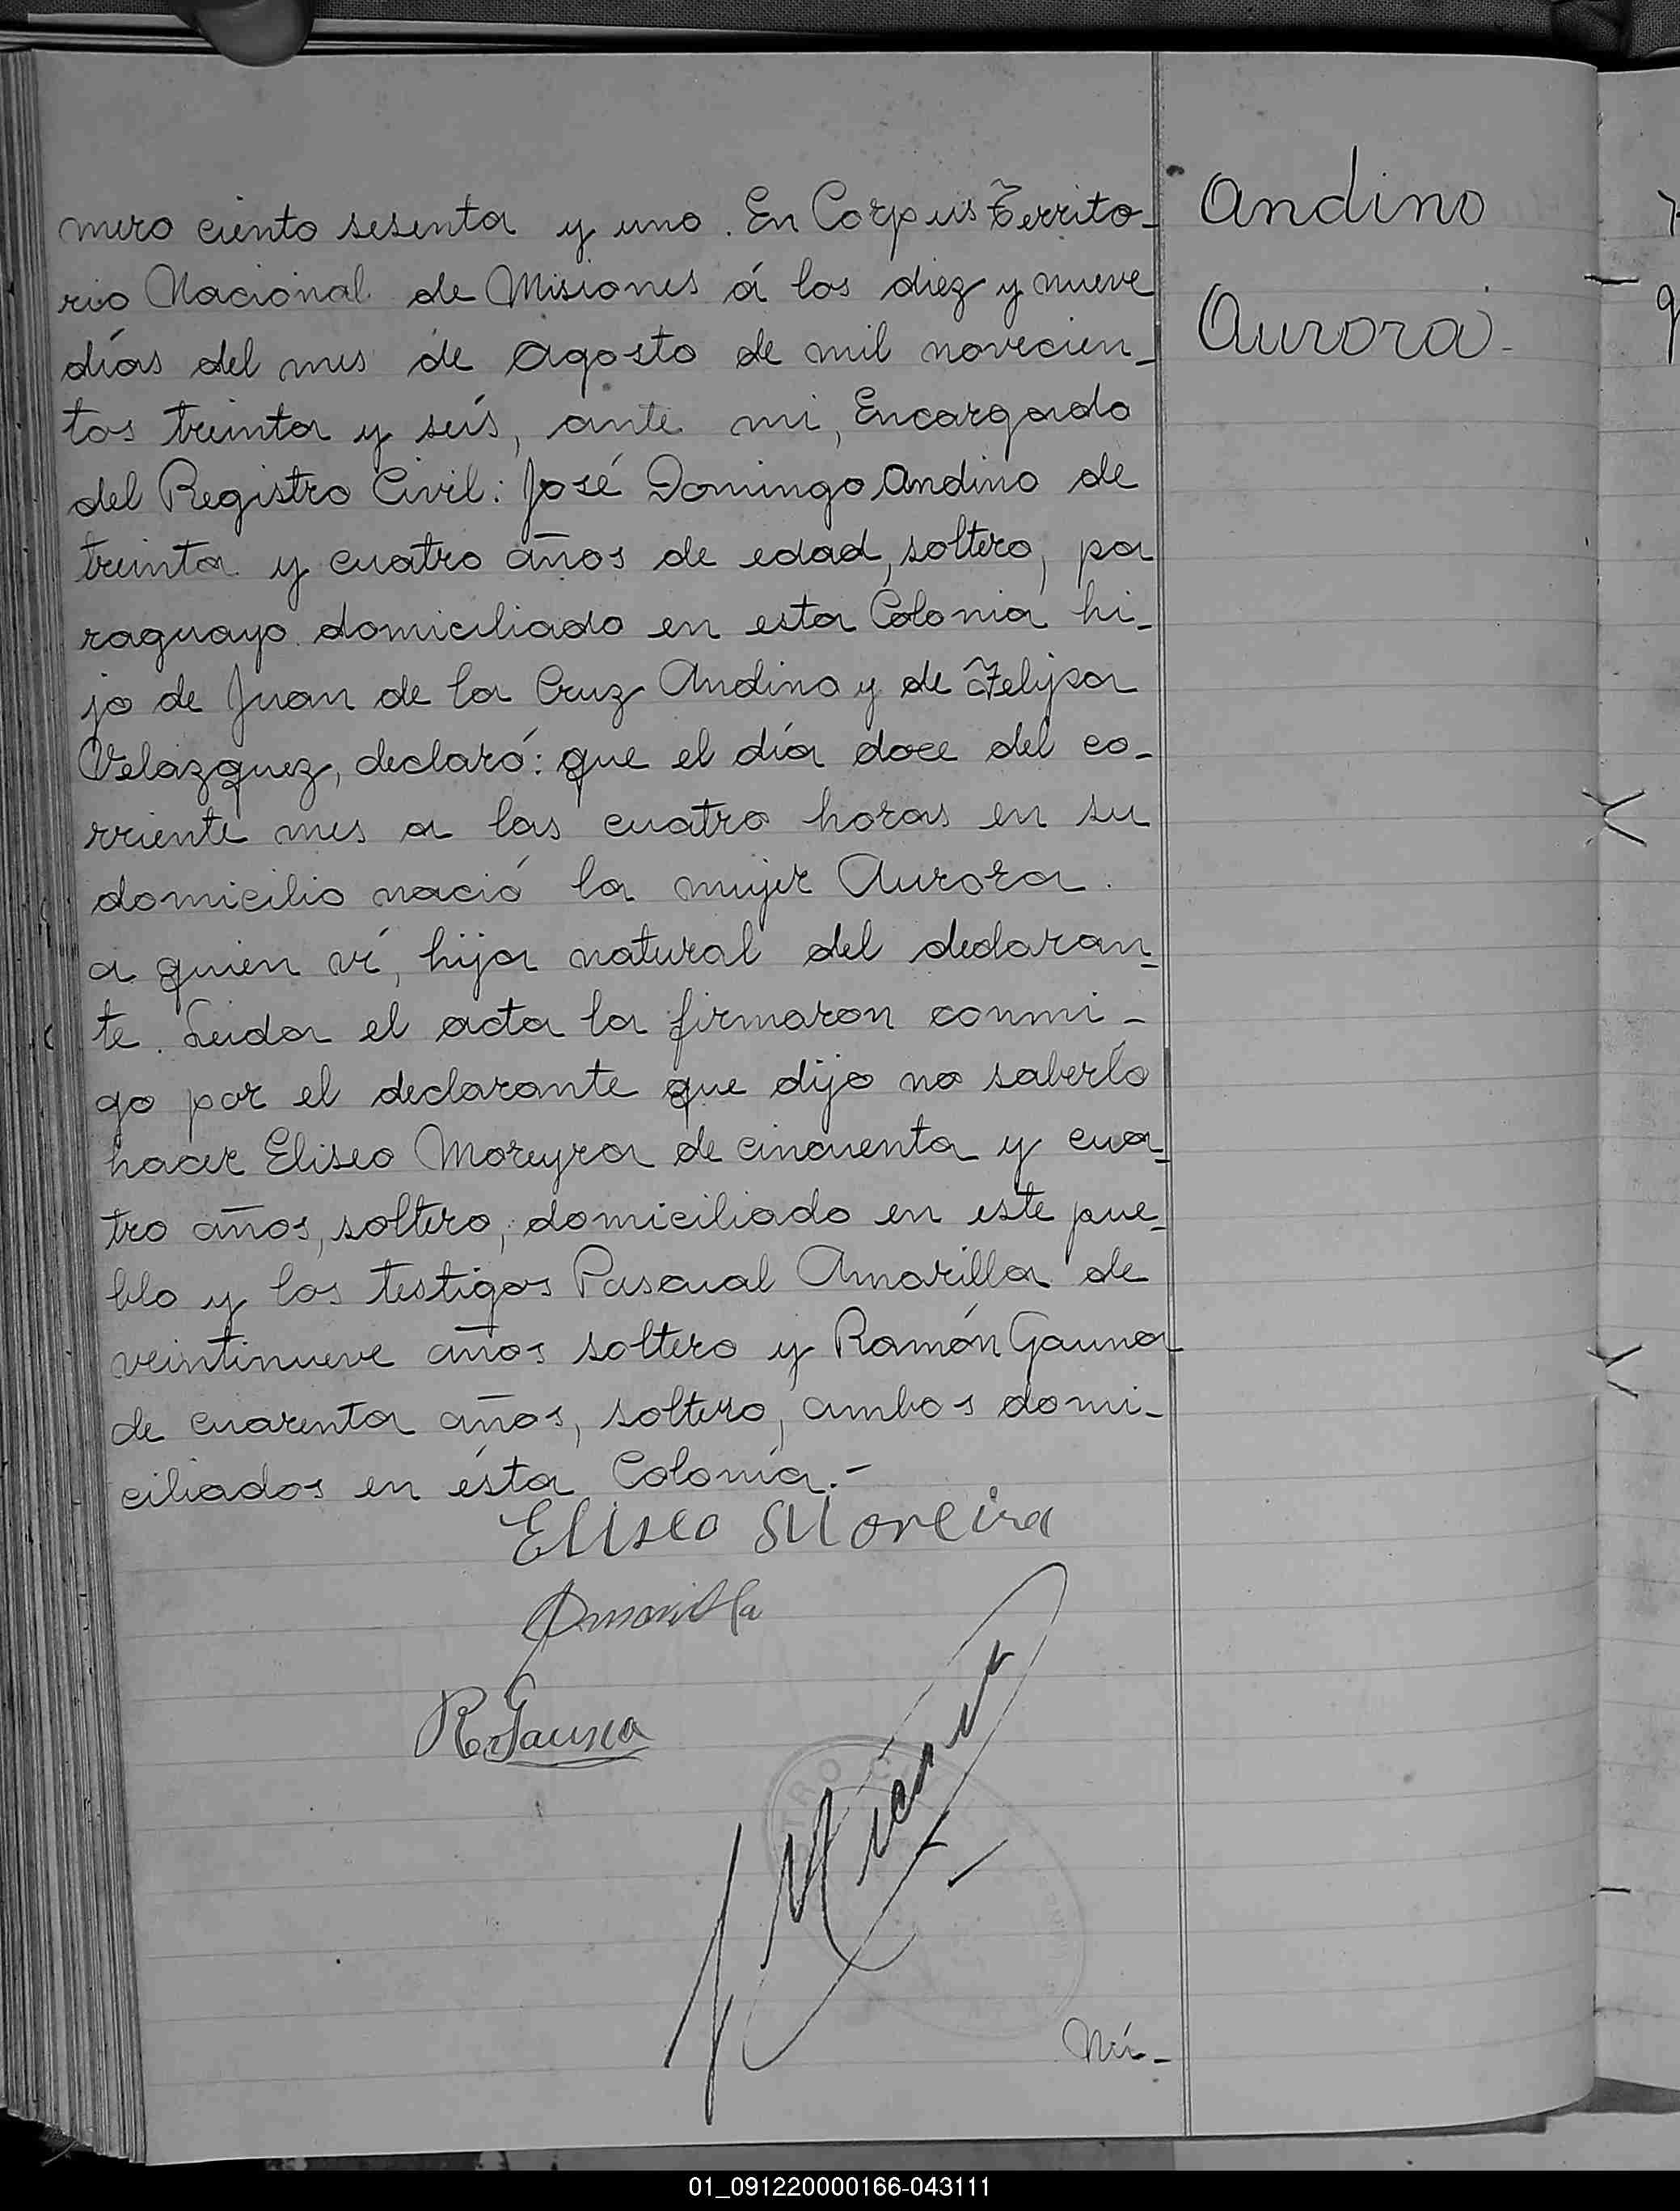 mero ciento sesenta y uno. En Corpus Territo-
rio Nacional de Misiones á los diez y nueve
días del mes de Agosto de mil novecien-
tos treinta y seis, ante mi, Encargado
del Registro Civil: José Domingo Andino de
treinta y cuatro años de edad, soltero, pa
raguayo domiciliado en esta Colonia hi-
jo de Juan de la Cruz Andino y de Felipa
Velazquez, declaró: que el día doce del co-
rriente mes a las cuatro horas en su
domicilio nació la mujer Aurora.
a quien ví, hija natural del declaran-
te. Leida el acta la firmaron conmi-
go por el declarante que dijo no saberlo
hacer Eliseo Moreyra de cincuenta y cua-
tro años, soltero, domiciliado en este pue-
blo y los testigos Pascual Amarilla de
veintinueve años soltero y Ramón Gauna
de cuarenta años, soltero, ambos domi-
ciliados en ésta Colonia.-
Eliseo Moreira
Amarilla
R. Gauna
Nú-
Andino
Aurora.-
01_091220000166-043111